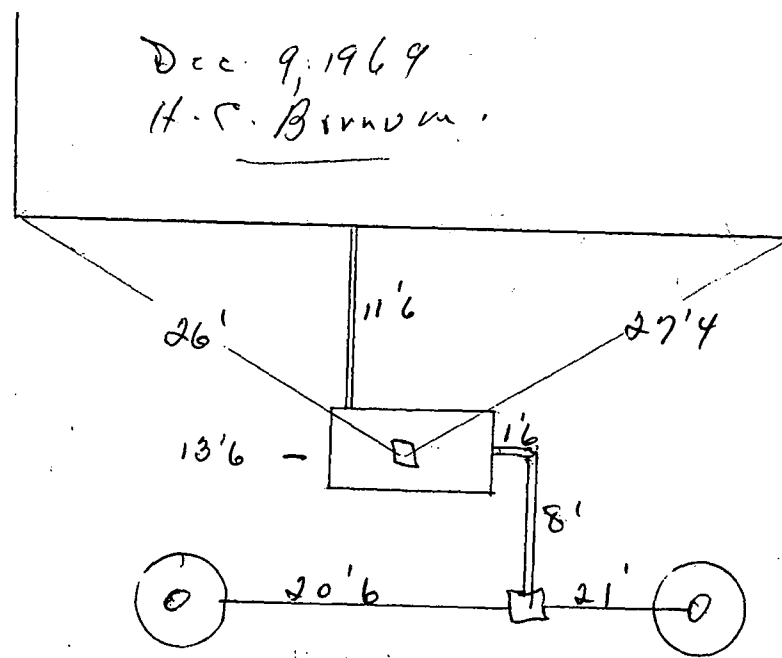 Dec. 9, 1969
H. C. Barnum.
11'6
26'
27'4
13'6 -
1'6
8'
20'6
21'